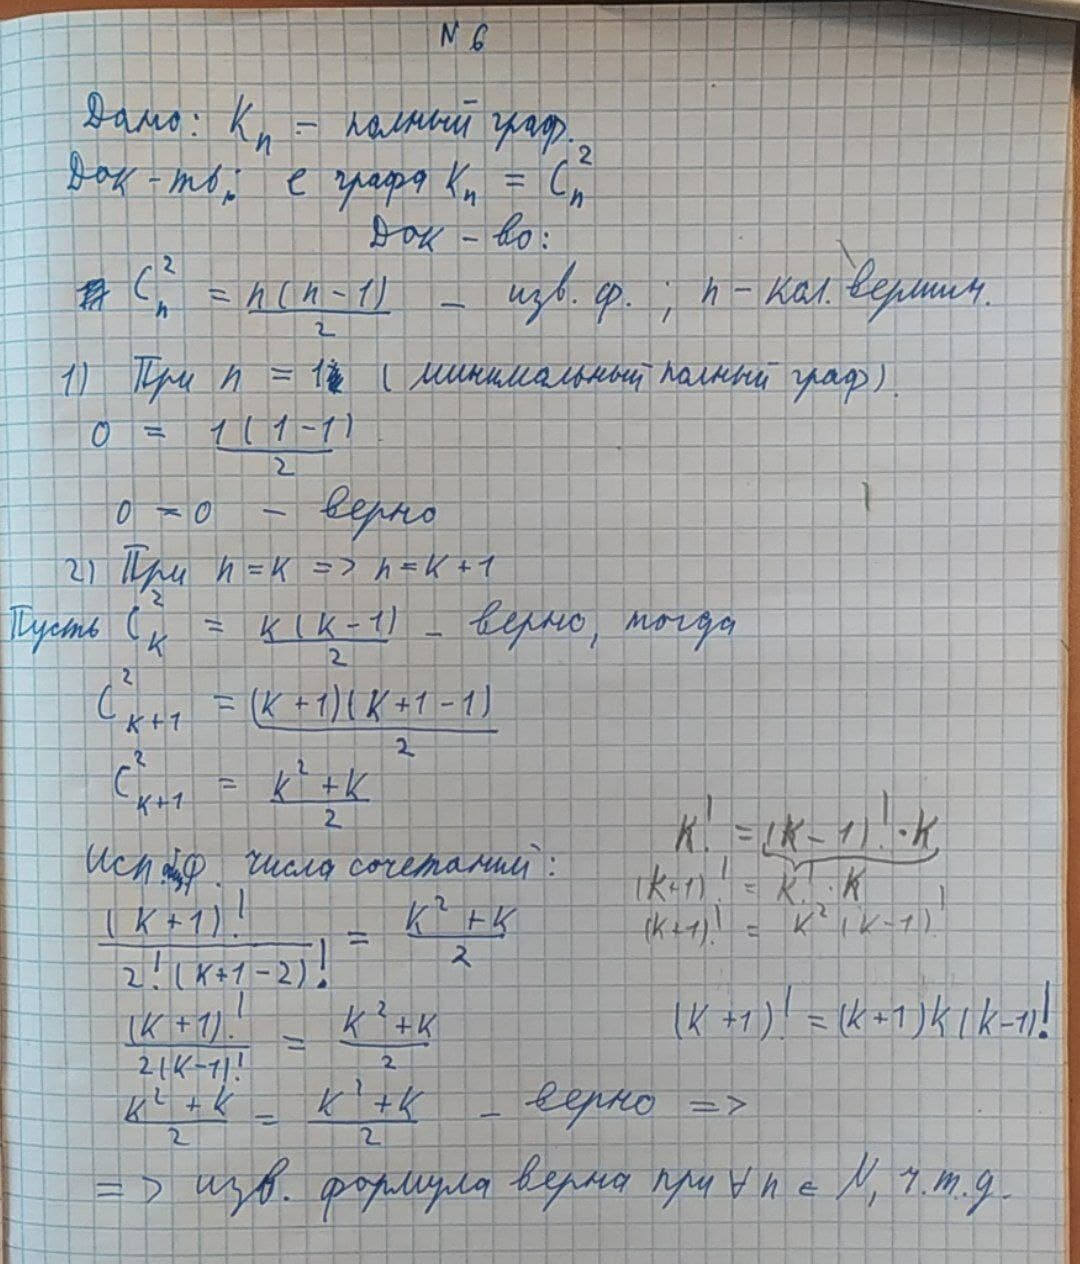 N 6
Дано: Kₙ – полный граф.
Док-ть: e графа Kₙ = Cₙ²
Док-во:
Cₙ² = n(n-1)/2 – изв. ф.; n – кол. вершин.
1) При n = 1 (минимальный полный граф).
0 = 1(1-1)/2
0 = 0 – верно
2) При n = k => n = k+1
Пусть C²ₖ = k(k-1)/2 – верно, тогда
C²ₖ₊₁ = (k+1)(k+1-1)/2
C²ₖ₊₁ = (k²+k)/2
k! = (k-1)!·k
Исп. ф. числа сочетаний:
(k+1)! = k!·k
(k+1)!/(2!(k+1-2)!) = (k²+k)/2
(k+1)! = k²(k-1)!
(k+1)!/(2(k-1)!) = (k²+k)/2
(k+1)! = (k+1)k(k-1)!
(k²+k)/2 = (k²+k)/2 – верно =>
=> изв. формула верна при ∀ n ∈ N, ч.т.д.